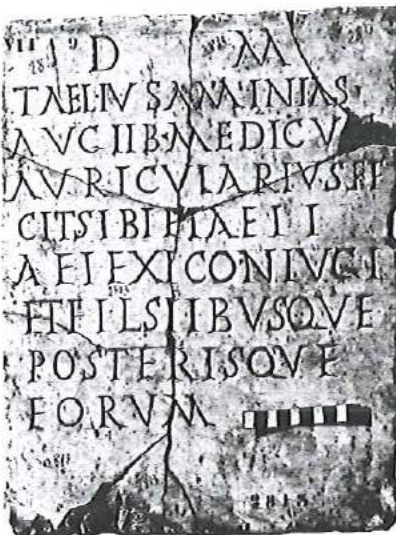 D M
T AELIVS AMINIAS
AVG LIB MEDICV
AVRICVLARIVS FE
CIT SIBI ET AELI
AE LEXI CONIVGI
ET FILS LIBVSQVE
POSTERISQVE
EORVM